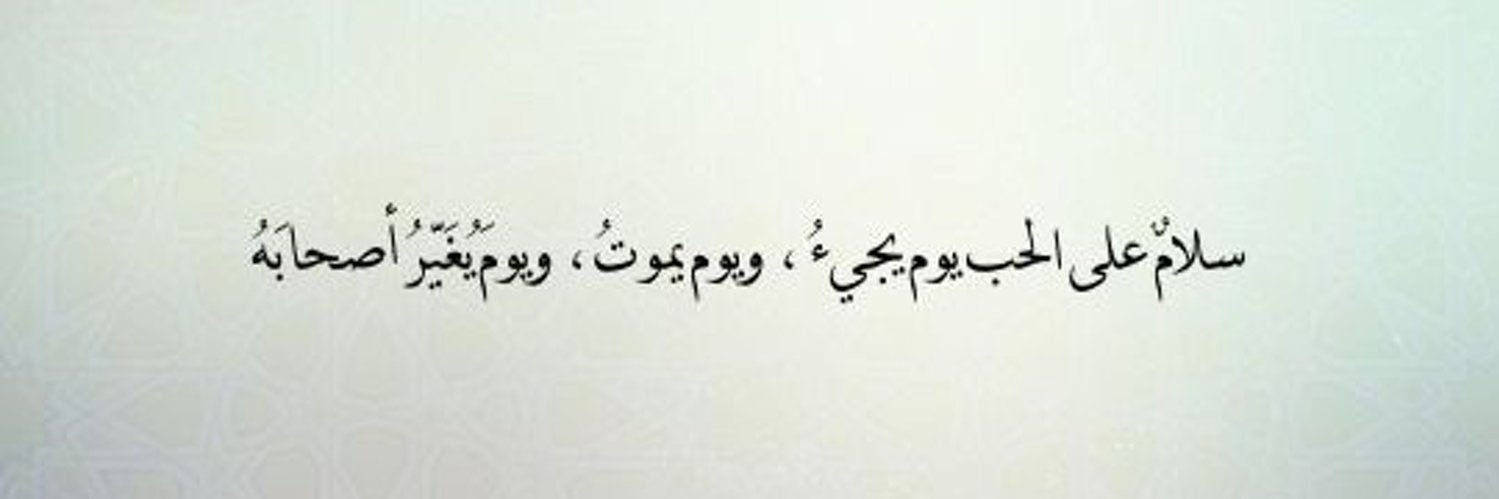 سلامٌ على الحب يوم يجيءُ ، ويوم يموتُ ، ويومَ يُغَيّرُ أصحابَهُ